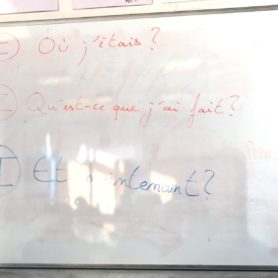 I Où j'étais?
I Qu'est-ce que j'ai fait?
I Et maintenant?